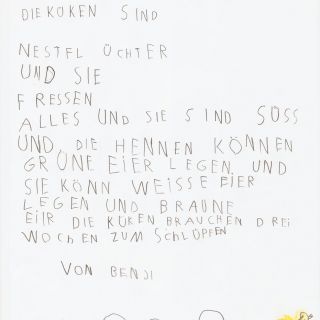 DIE KÜKEN SIND
NESTFL ÜCHTER
UND SIE
FRESSEN
ALLES UND SIE SIND SÜSS
UND, DIE HENNEN KÖNNEN
GRÜNE EIER LEGEN UND
SIE KÖNN WEISSE EIER
LEGEN UND BRAUNE
EIIR DIE KÜKEN BRAUCHEN DREI
WOCHEN ZUM SCHLÜPFEN
VON BENJI